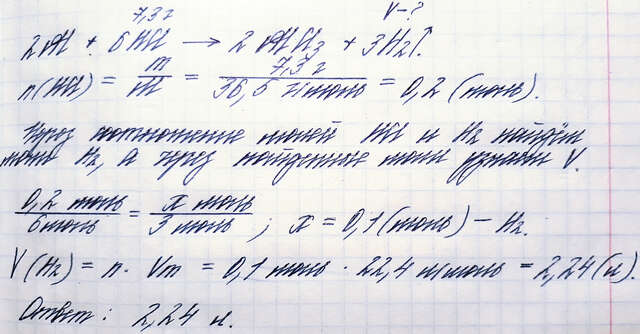 7,3 г V - ?
2Al + 6HCl → 2AlCl₃ + 3H₂↑.
n(HCl) = m/M = 7,3 г / 36,5 г/моль = 0,2 (моль).
Через соотношение молей HCl и H₂ найдём
моли H₂, а через найденные моли узнаём V.
0,2 моль / 6 моль = x моль / 3 моль ; x = 0,1 (моль) - H₂.
V(H₂) = n · Vm = 0,1 моль · 22,4 л/моль = 2,24 (л).
Ответ: 2,24 л.